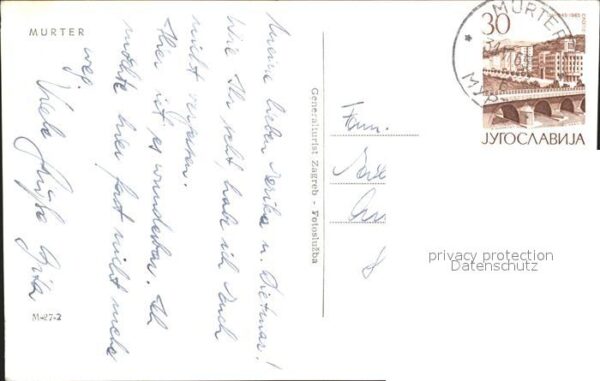 MURTER
Meine lieben Marika u. Dietmar!
Wie Ihr seht, habe ich Euch
nicht vergessen.
Hier ist es wunderbar. Ich
möchte hier fast nicht mehr
weg.
Viele Grüße
M-27-2
Generalturist Zagreb - Fotoslužba
Fam.
30
MURTER
ЈУГОСЛАВИЈА
privacy protection
Datenschutz